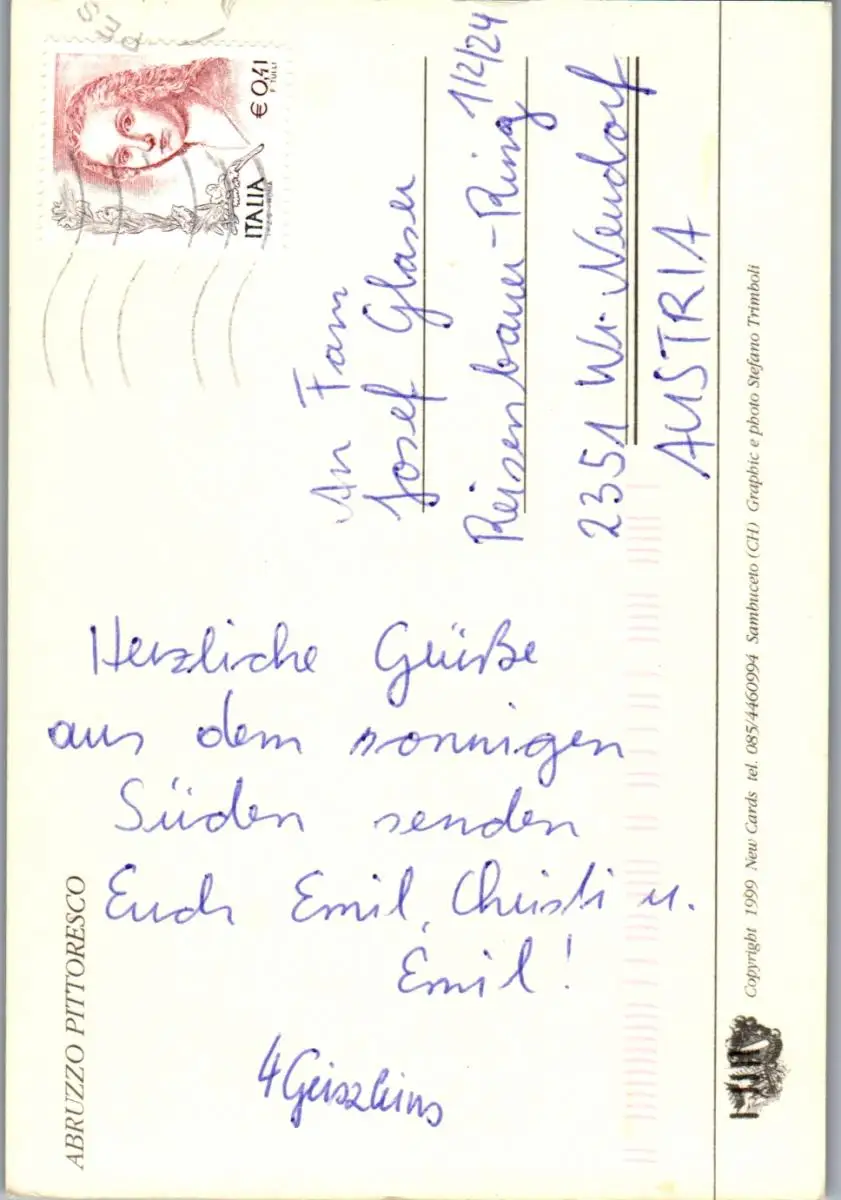 ABRUZZO PITTORESCO
Herzliche Grüße
aus dem sonnigen
Süden senden
Euch Emil, Christi u.
Emil!
ITALIA
€ 0,41
F. TULLI
An Fam
Josef Glaser
Reisenbauer-Ring 1/2/24
2351 Wr. Neudorf
AUSTRIA
Copyright 1999 New Cards tel. 085/4460994 Sambuceto (CH) Graphic e photo Stefano Trimboli